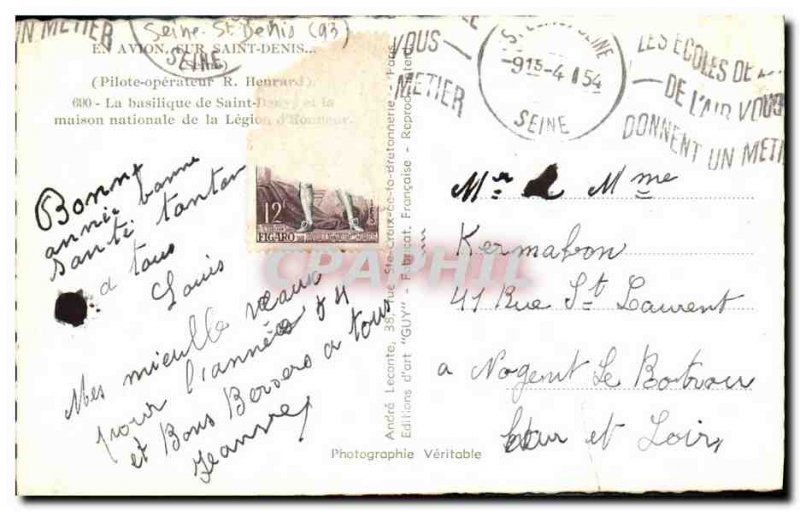 UN METIER
Seine-St Denis (93)
SEINE
EN AVION SUR SAINT-DENIS...
(Pilote-opérateur R. Henrard)
600 - La basilique de Saint-Denys et la
maison nationale de la Légion d'Honneur.
VOUS
METIER
SEINE
-9 15-4 1 54
SEINE
LES ECOLES DE
DE L'AIR VOUS
DONNENT UN METI
12
FIGARO
Bonne
année bonne
santé tonton
a tous
Louis
Mes mieulle vœaux
pour l'année 54
et Bons Bersers a tous
André Leconte, 38, rue Ste-Croix-de-la-Bretonnerie - Paris
Editions d'art "GUY" - Fabricat. Française - Reproduct. Interd.
Photographie Véritable
CPAPHIL
.com
Mr & Mme
Kermabon
41 Rue St Laurent
a Nogent Le Botrou
Eur et Loir